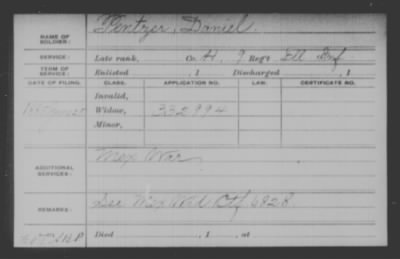 NAME OF SOLDIER: Pintzer, Daniel.
SERVICE: Late rank, Co. H, 9 Reg't Ill Inf.
TERM OF SERVICE: Enlisted , 1 Discharged , 1
DATE OF FILING. CLASS. APPLICATION NO. LAW. CERTIFICATE NO.
Invalid,
Widow, 332994
Minor,
ADDITIONAL SERVICES: Mex War
REMARKS: See Mex Wid. Ctf 6928
Died , 1 , at